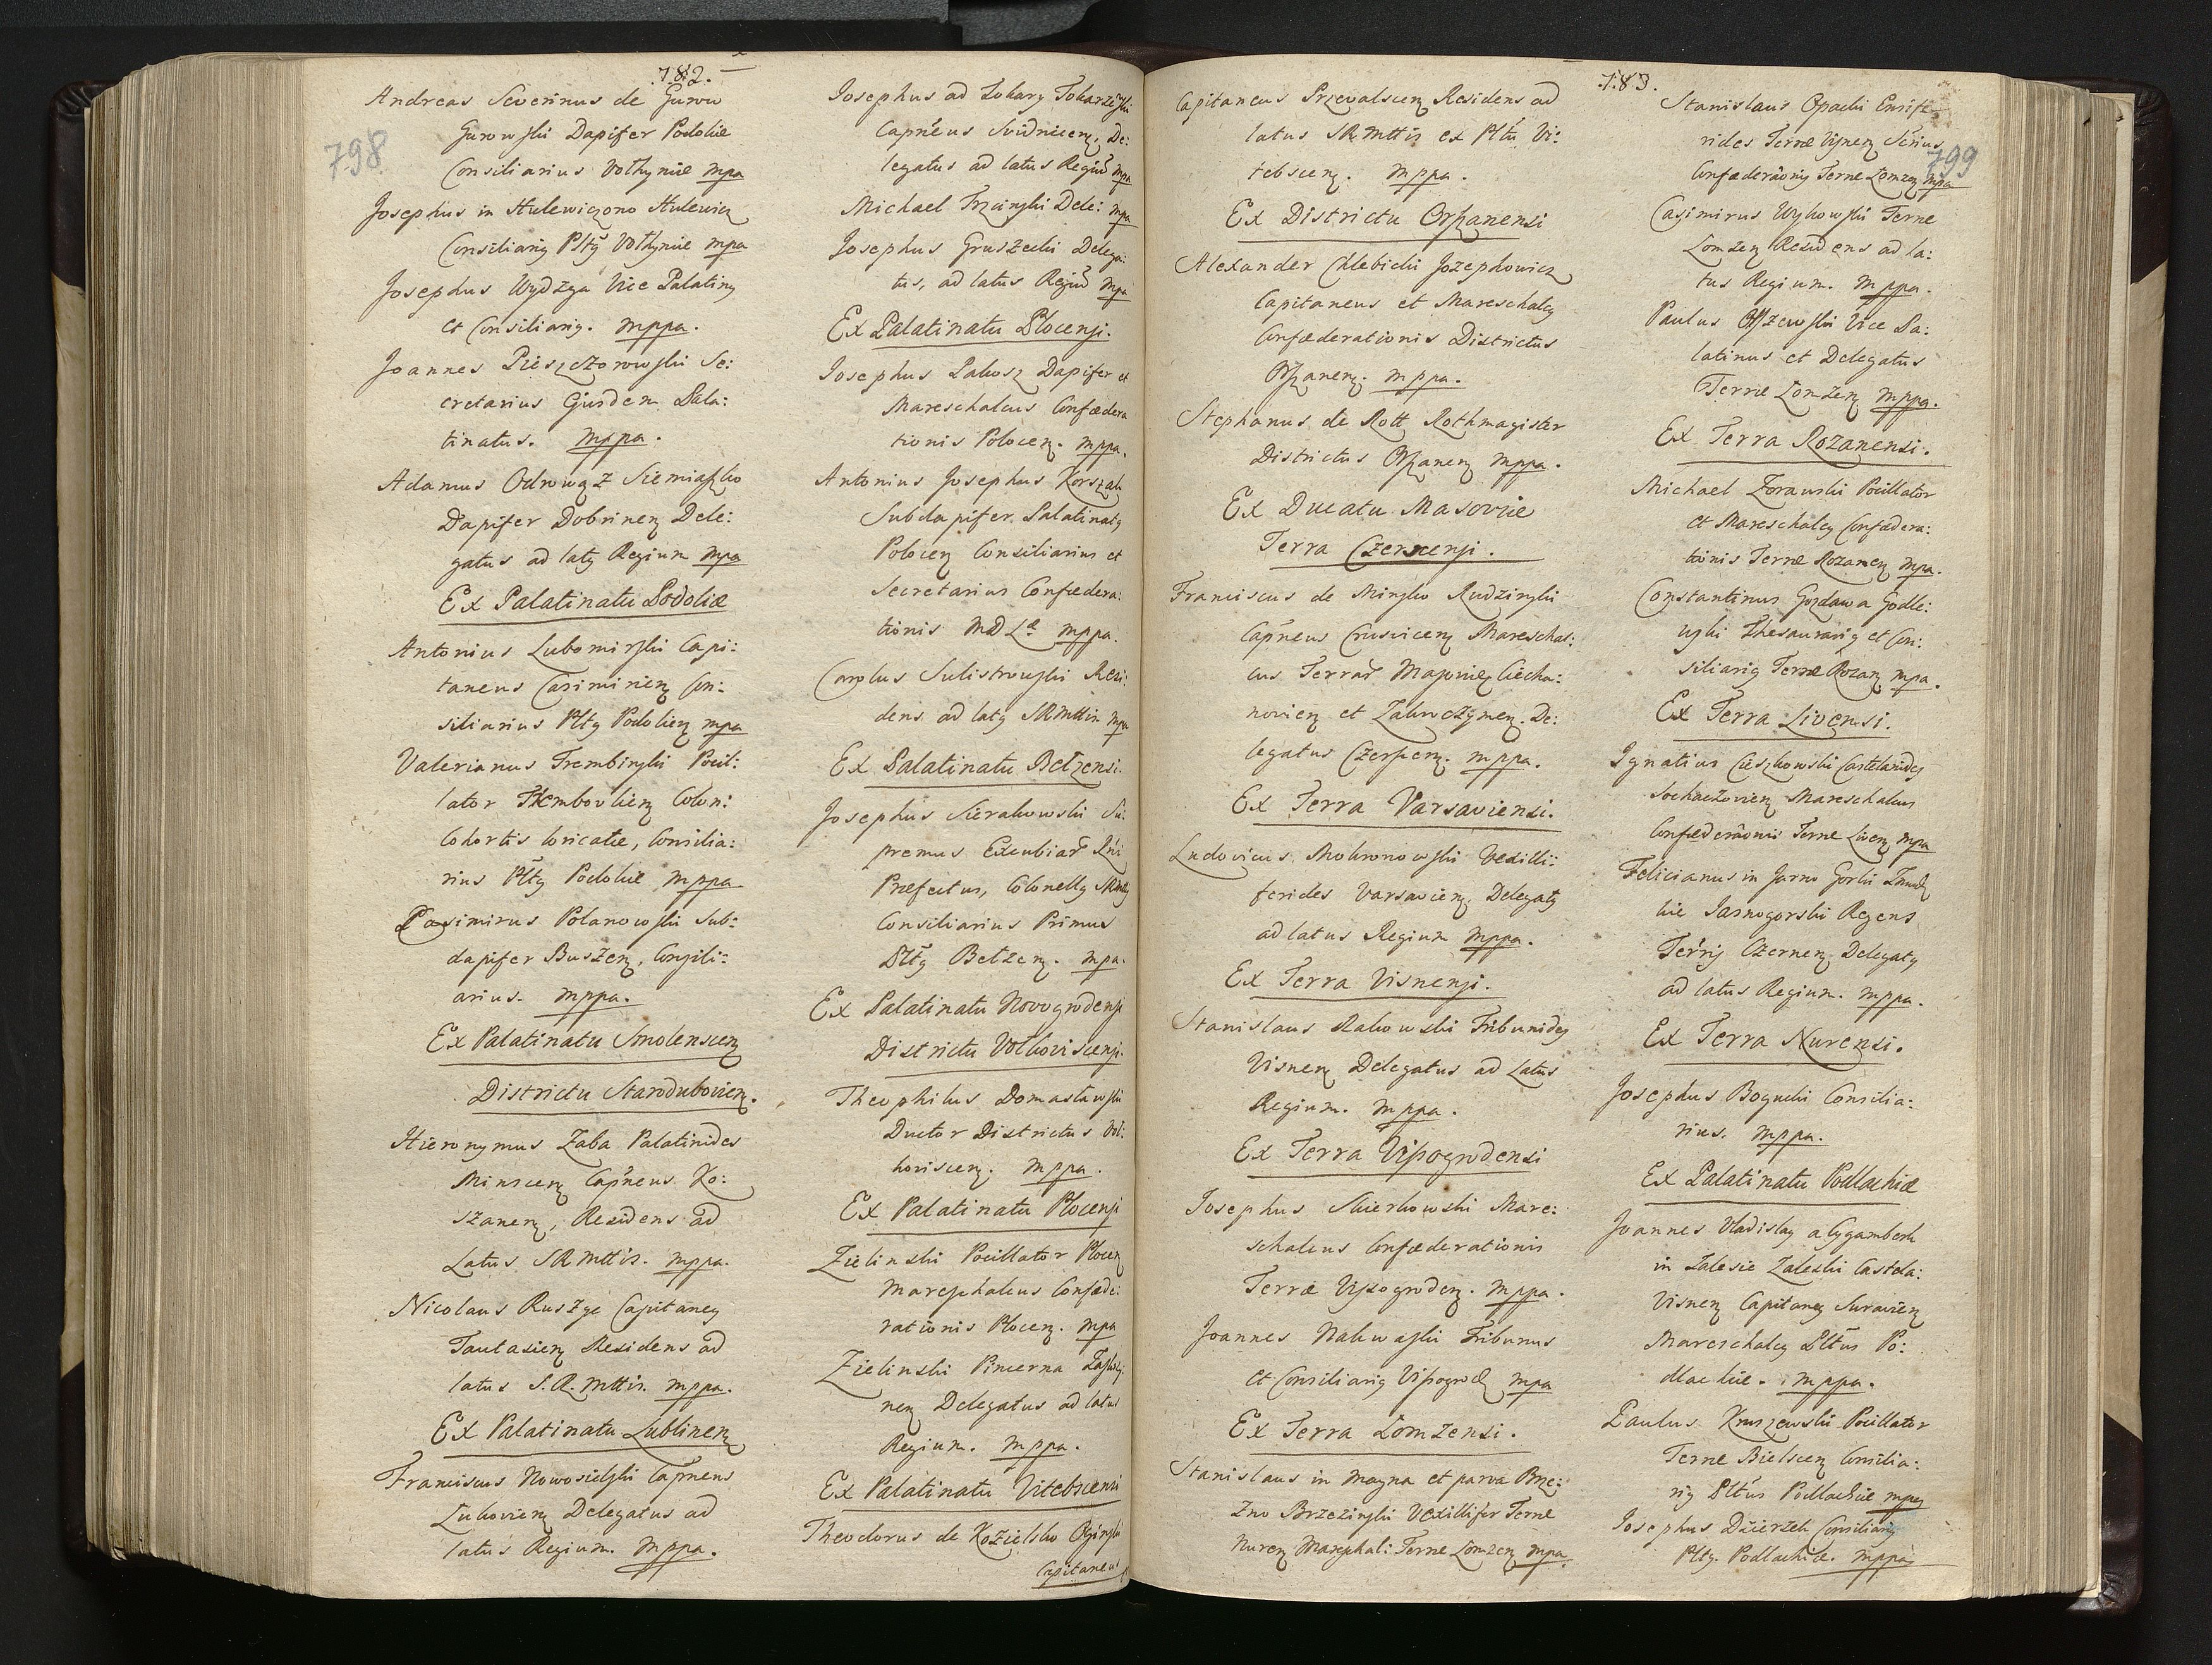 782.
798
Andreas Severinus de Gurow
Gurowski Dapifer Podoliæ
Consiliarius Volhyniæ mpa
Josephus in Hulewiczono Hulewicz
Consiliarig Pltg Volhyniæ mpa
Josephus Wydzga Vice Palating
et Consiliarig. mppa.
Joannes Pieszczorowski Se:
cretarius Ejusdem Pala:
tinatus. mppa.
Adamus Odrowąz Siemiaszko
Dapifer Dobrinen Dele:
gatus ad latg Regium mpa
Ex Palatinatu Podoliæ
Antonius Lubomirski Capi:
taneus Casimirien Con:
siliarius Pltg Podolien mpa
Valerianus Trembinski Pocil:
lator Trembovlien Colon:
Cohortis loricatæ, Consilia:
rius Pltg Podoliæ mppa
Casimirus Polanowski Sub:
dapifer Buszen, Consili:
arius. mppa.
Ex Palatinatu Smolenscen
Districtu Starodubovien.
Hieronymus Zaba Palatinides
Minscen Capneus Ko:
szanen, Residens ad
Latus SRMttis. mppa.
Nicolaus Ruszge Capitaneg
Tautasien Residens ad
latus S.R.Mttis. mppa.
Ex Palatinatu Lublinen
Franciscus Nowosielski Capneus
Lukovien Delegatus ad
latus Regium. mppa.
Josephus ad Tokary Tokarzewski
Capneus Svidnicen, De:
legatus ad latus Regiu mpa
Michael Trzcinski Dele: mpa
Josephus Gruszecki Delega:
tus, ad latus Regiu mpa
Ex Palatinatu Plocensi.
Josephus Pakosz Dapifer et
Mareschalcus Confædera
tionis Polocen. mppa.
Antonius Josephus Korszak
Subdapifer Palatinatg
Polocen Consiliarius et
Secretarius Confædera:
tionis MD La mppa.
Carolus Sulistrowski Resi:
dens ad latg SRMttis mpa
Ex Palatinatu Belzensi.
Josephus Sierakowski Su:
premus Excubiar Rni
Præfectus, Colonellg SRMttg
Consiliarius Primus
Pltg Belzen. mpa.
Ex Palatinatu Novogrodensi
Districtu Volkoviscensi.
Theophilus Domasławski
Ductor Districtus Vol:
koviscen. mppa.
Ex Palatinatu Plocensi
Zielinski Pocillator Plocen
Mareschalcus Confæde:
rationis Plocen. mpa
Zielinski Pincerna
nen Delegatus ad latus
Regium. mppa.
Ex Palatinatu Vitebscensi
Theodorus de Kozielsko Oginski
Capitaneus
783.
799
Capitaneus Przevalscen Residens ad
latus SRMttis ex Pltu Vi:
tebscen. mppa.
Ex Districtu Orszanensi
Alexander Chlebicki Jozephowicz
Capitaneus et Mareschalcg
Confæderationis Districtus
Orszanen. mppa.
Stephanus de Rott Rothmagister
Districtus Orszanen mppa.
Ex Ducatu Masoviæ
Terra Czernensi.
Franciscus de Minsko Rudzinski
Capneus Crusvicen Mareschal:
cus Terrar Masoviæ Ciecha:
novien et Zakroczymen. De:
legatus Czersken. mppa.
Ex Terra Varsaviensi.
Ludovicus Mokronowski Vexilli:
ferides Varsavien Delegatg
ad latus Regium mppa.
Ex Terra Visnensi.
Stanislaus Rakowski Tribunidg
Visnen Delegatus ad Latus
Regium. mppa.
Ex Terra Vissogrodensi
Josephus Skierkowski Mare:
schalcus Confæderationis
Terræ Vissogroden. mppa.
Joannes Nakwaski Tribunus
et Consiliarig Vissogrod mpa
Ex Terra Łomzensi.
Stanislaus in Magna et parva Brze:
zno Brzezinski Vexillifer Terræ
Nuren Mareschal: Terræ Łomzen mpa.
Stanislaus Opacki Ensife
rides Terræ Visnen Secius
Confæderaonis Terræ Łomzen mpa
Casimirus Wykowski Terræ
Łomzen Residens ad la:
tus Regium. mppa.
Paulus Olszewski Vice Pa:
latinus et Delegatus
Terræ Łomzen mppa.
Ex Terra Rozanensi.
Michael Zorawski Pocillator
et Mareschalcg Confædera:
tionis Terræ Rozanen mpa.
Constantinus Gozdawa Godle:
wski Thesaurarig et Con:
siliarig Terræ Rozan mpa.
Ex Terra Livensi.
Ignatius Cieszkowski Castelanidg
Sochaczovien Mareschalcus
Confæderaonis Terræ Liven mpa
Felicianus in Jarno Gorki
Jasnogorski Regens
Terris Czernen Delegatg
ad latus Regium. mppa.
Ex Terra Nurensi.
Josephus Bogucki Consilia:
rius. mppa.
Ex Palatinatu Podlachiæ
Joannes Vladislag a Cygambergh
in Zalesie Zaleski Castela:
Visnen Capitaneg Suravien
Mareschalcg Pltus Po:
dlachiæ. mppa.
Paulus Kruszewski Pocillator
Terræ Bielscen Consilia:
rig Pltus Podlachiæ mpa
Josephus Dzierzek Consiliarig
Pltg. Podlachiæ. mppa